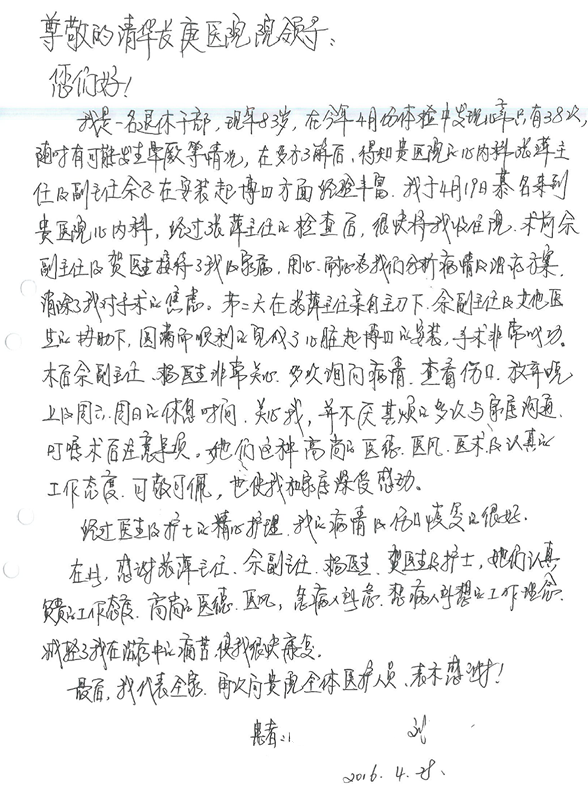 尊敬的清华长庚医院院领导：
您们好！
我是一名退休干部，现年83岁，在今年4月份体检中发现心率只有38次，
随时有可能发生晕厥等情况，在多方了解后，得知贵医院心内科张萍主
任及副主任余在安装起搏器方面经验丰富．我于4月19日慕名来到
贵医院心内科，经过张萍主任的检查后，很快将我收住院．术前余
副主任及贺医生接待了我及家属，用心．耐心为我们分析病情及治疗方案，
消除了我对手术的焦虑。第二天在张萍主任亲自主刀下．余副主任及其他医
生的协助下，圆满而顺利的完成了心脏起搏器的安装，手术非常成功。
术后余副主任．杨医生非常关心．多次询问病情．查看伤口．放弃晚
上及周六．周日的休息时间．关心我，并不厌其烦的多次与家属沟通．
叮嘱术后注意事项。她们这种高尚的医德．医风．医术及认真的
工作态度．可敬可佩，也使我和家属深受感动。
经过医生及护士的精心护理．我的病情及伤口恢复的很好．
在此，感谢张萍主任．余副主任．杨医生．贺医生及护士，她们认真
负责的工作态度．高尚的医德．医风，急病人所急．想病人所想的工作理念．
减轻了我在治疗中的痛苦使我很快康复．
最后，我代表全家．再次向贵院全体医护人员．表示感谢！
患者： 刘
2016.4.28.